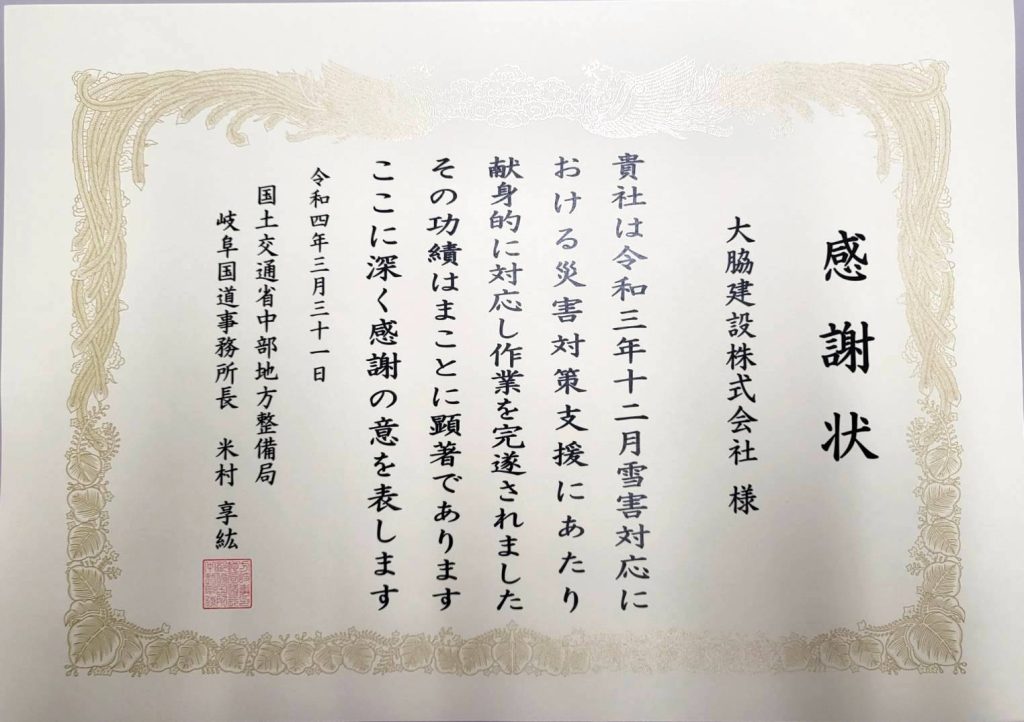 感謝状
大脇建設株式会社 様
貴社は令和三年十二月雪害対応に
おける災害対策支援にあたり
献身的に対応し作業を完遂されました
その功績はまことに顕著であります
ここに深く感謝の意を表します
令和四年三月三十一日
国土交通省中部地方整備局
岐阜国道事務所長 米村 享紘